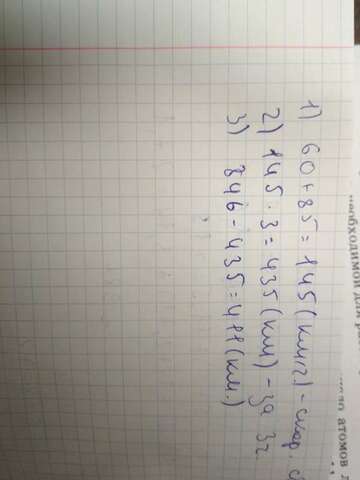 1) 60+85=145(км/ч)-скор.
2) 145·3=435(км)-за 3ч
3) 846-435=411(км.)
необходимой для
атомов